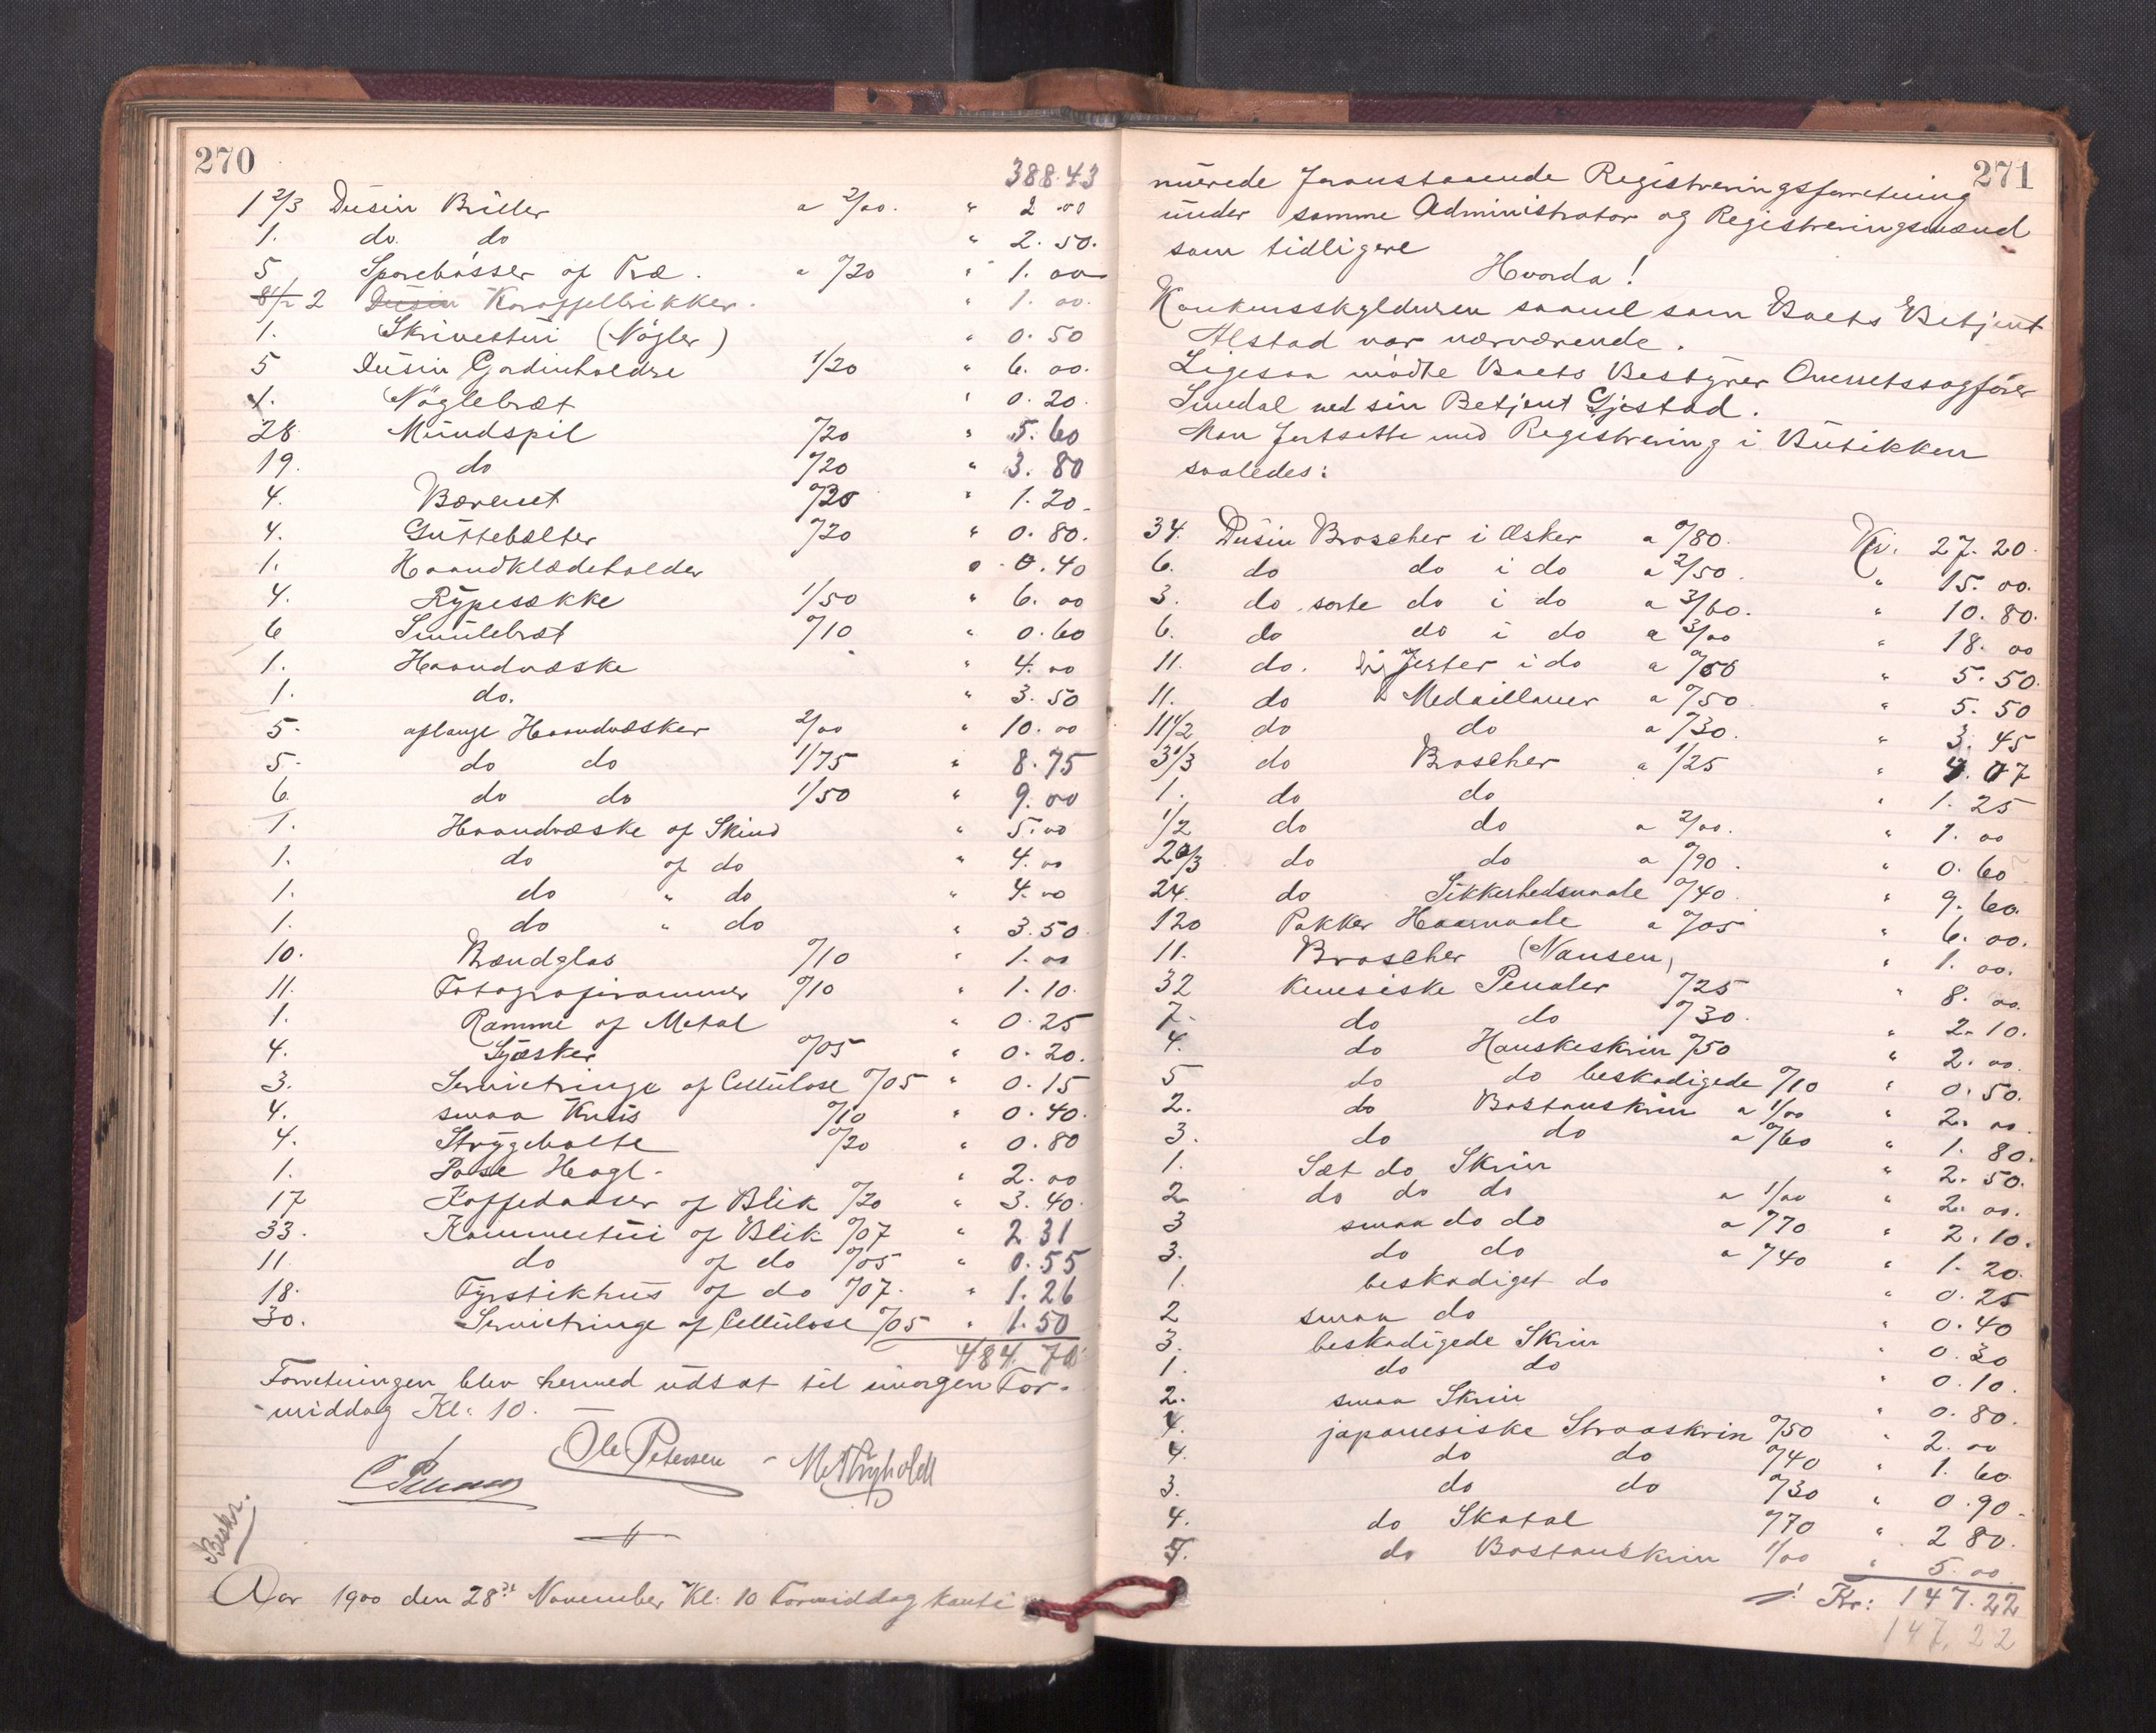 270
388.43
1 2/3 Dusin Briller a 2/00. " 2 00
1. do. do " 2. 50.
5 Sparebøsser af Træ. a 0/20 " 1. 00
2 Dusin Karaffelbrikker. " 1. 00.
1. Skrivestui (Nøgler) " 0. 50
5 Dusin Gardinholdre 1/20 " 6. 00.
1. Nøglebræt " 0. 20.
28 Mundspil 0/20 " 5. 60
19. do 0/20 " 3. 80
4. Bærenet 0/30 " 1. 20.
4. Guttebælter 0/20 " 0. 80.
1. Haandklædeholder " 0. 40
4. Rypesække 1/50 " 6. 00
6 Smulebræt 0/10 " 0. 60
1. Haandvæske " 4. 00
1. do. " 3. 50
5. aflange Haandvæsker 2/00 " 10. 00
5. do do 1/75 " 8. 75
6. do do 1/50 " 9. 00
1. Haandvæske af Skind " 5. 00
1. do af do " 4. 00
1. do " do " 4. 00
1. do " do " 3. 50
10. Brændglas 0/10 " 1. 00
11. Fotografirammer 0/10 " 1. 10.
1. Ramme af Metal " 0. 25
4. 0/05 " 0. 20.
3. Servietringe af Cellulose 0/05 " 0. 15
4. smaa Krus 0/10 " 0. 40.
4. Strygebolte 0/20 " 0. 80
1. Pose Hagl. " 2. 00
17 Kaffedaaser af Blik 0/20 " 3. 40.
33. Kammestui af Blik 0/07 " 2. 31
11 do af do 0/05 " 0. 55
18. Fyrstikhus af do 0/07. " 1. 26
30. Servietringe af Cellulose 0/05 " 1. 50
484. 70
Forretningen blev hermed udsat til imorgen For-
middag Kl: 10. —
Ole Petersen
Beskr.
Aar 1900 den 28de November Kl: 10 Formiddag konti
271
nuerede foranstaaende Registreringsforretning
under samme Administrator og Registreringsmænd
som tidligere
Hvorda!
Konkursskyldneren saavel som Boets Betjent
Alstad var nærværende.
Ligesaa mødte Boets Bestyrer Overretssagfører
Smedal med sin Betjent Gjestad.
Man fortsatte med Registrering i Butikken
saaledes:
34. Dusin Broscher i Æsker a 0/80. Kr. 27. 20.
6. do do i do a 2/50. " 15. 00.
3. do sorte do i do a 3/60. " 10. 80.
6. do do i do a 3/00 " 18. 00
11. do. i do a 0/50 " 5. 50.
11. do Medaillauer a 0/50 " 5. 50
11 1/2 do do a 0/30. " 3. 45
3 1/3 do Broscher a 1/25 " 4. 07
1. do do " 1. 25
1/2 do do a 2/00. " 1. 00
2/3 do do a 0/90. " 0. 60
24. do Sikkerhedsnaale 0/40 " 9. 60.
120 Pakker Haarnaale a 0/05 " 6. 00.
11. Broscher (Nansen) " 1. 00.
32 kinesiske Penaler 0/25 " 8. 00.
7. do do 0/30. " 2. 10.
4. do Hanskeskrin 0/50 " 2. 00.
5 do do beskadigede 0/10 " 0. 50.
2. do Bastanskrin a 1/00 " 2. 00.
3. do do a 0/60 " 1. 80.
1. Sæt do Skrin " 2. 50.
2 do do do a 1/00 " 2. 00.
3 smaa do do a 0/70 " 2. 10.
3. do do a 0/40 " 1. 20.
1. beskadiget do " 0. 25
2 smaa do " 0. 40
3. beskadigede Skrin " 0. 30
1. do do " 0. 10.
2. smaa Skrin " 0. 80.
4. japanesiske Straaskrin 0/50 " 2. 00
4. do do 0/40 " 1. 60
3. do do 0/30 " 0. 90.
4. do Skatol 0/70 " 2 80.
5. do Bastanskrin 1/00 " 5. 00
Kr: 147. 22
147. 22